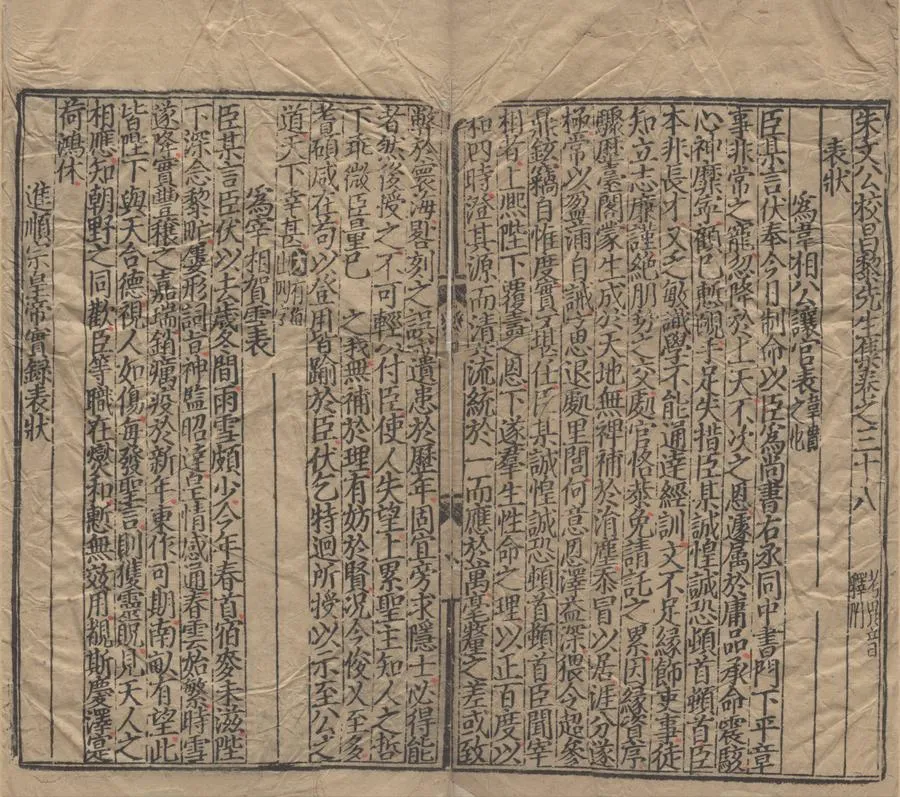 朱文公校昌黎先生集卷之三十八 考異音釋附
表狀
為韋相公讓官表 韋貫之也
臣某言伏奉今日制命以臣為尚書右丞同中書門下平章
事非常之寵忽降於上天不次之恩遽属於庸品承命震駭
心神靡寧顧己慙覥手足失措臣某誠惶誠恐頓首頓首臣
本非長才又乏敏識學不能通達經訓文不足縁飾吏事徒
知立志廉謹絶朋勢之交處官恪恭免請託之累因縁資序
驟歷臺閣蒙生成於天地無裨補於涓塵忝冒以居涯分遂
極常以盈滿自誡方思退處里閭何意恩澤益深猥令超參
鼎鉉竊自惟度實不堪任臣某誠惶誠恐頓首頓首臣聞宰
相者上熈陛下覆燾之恩下遂羣生性命之理以正百度以
和四時澄其源而清其流統於一而應於萬毫釐之差或致
弊於寰海晷刻之誤或遺患於歷年固宜旁求隱士必得能
者然後授之不可輕以付臣使人失望上累聖主知人之哲
下乖微臣量己之 無補於理有妨於賢況今俊乂至多
耆碩咸在苟以登用皆踰於臣伏乞特迴所授以示至公之
道天下幸甚
為宰相賀雪表
臣某言臣伏以去歲冬間雨雪頗少今年春首宿麥未滋陛
下深念黎甿屢形詞言神監昭達皇情感通春雲始繁時雪
遂降實豐穰之嘉瑞銷癘疫於新年東作可期南畝有望此
皆陛下與天合德視人如傷每發聖言則獲靈貺見天人之
相應知朝野之同歡臣等職在爕和慙無效用覩斯慶澤寔
荷鴻休
進順宗皇帝實録表狀